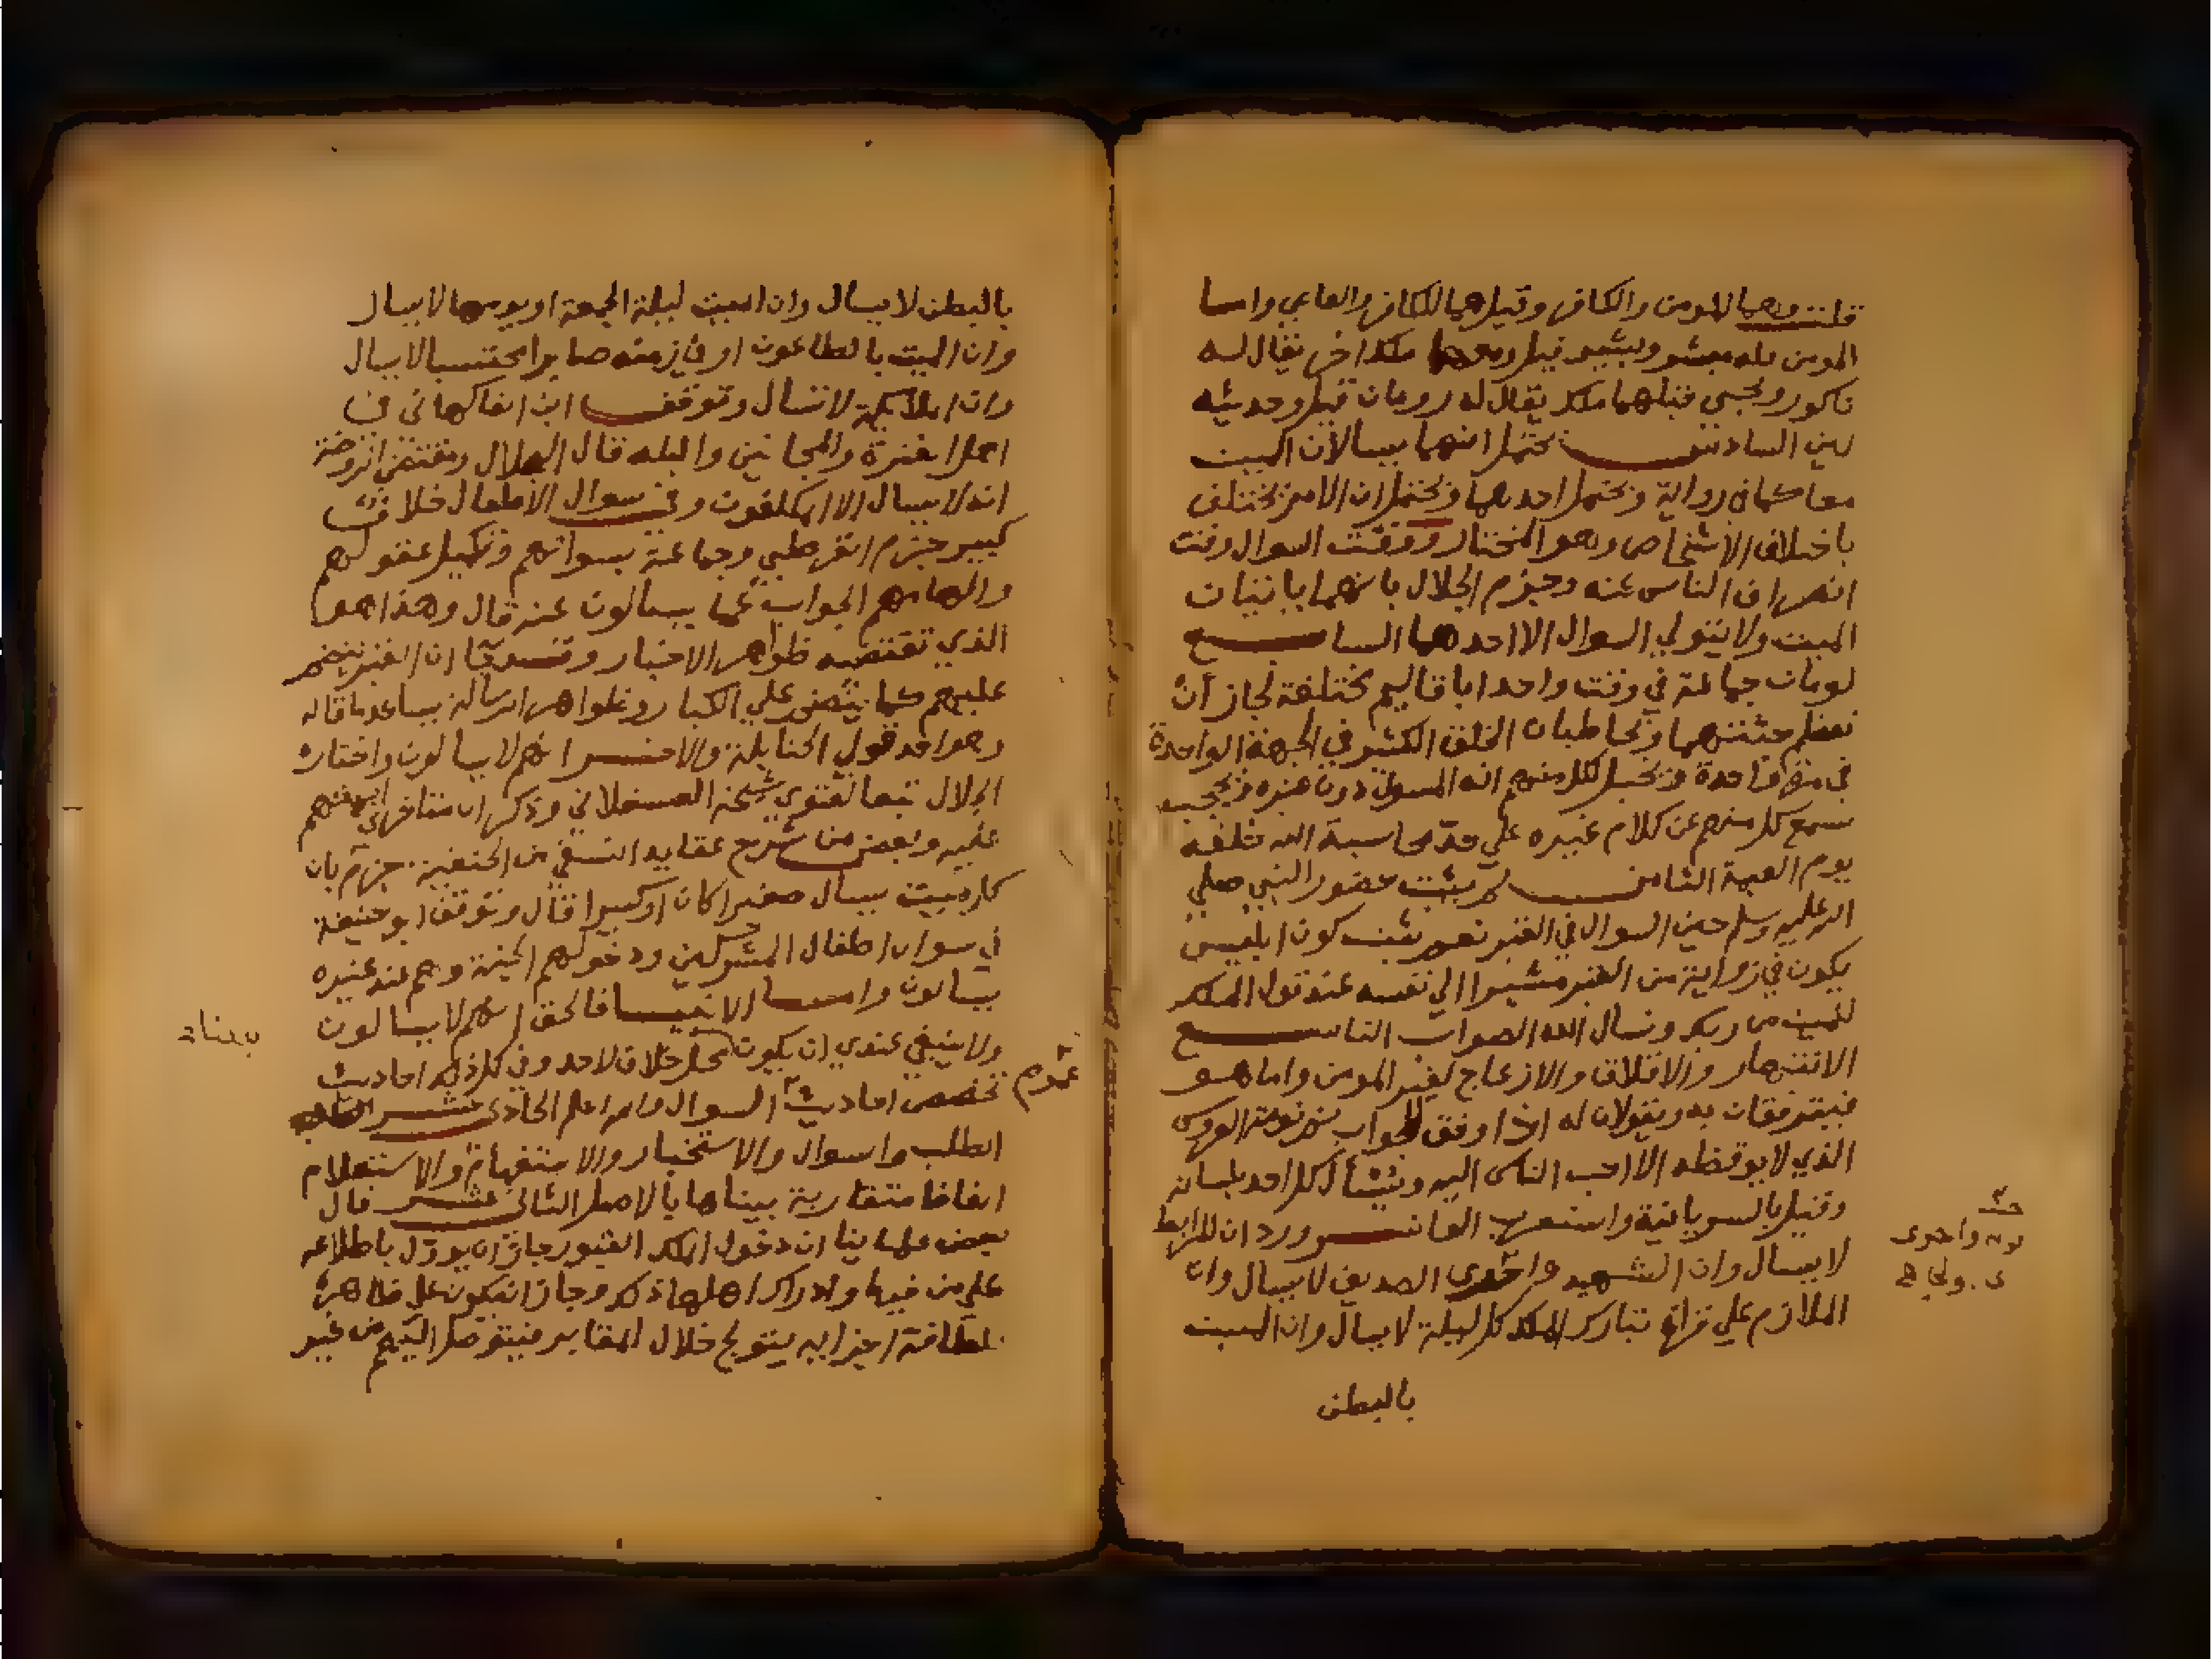 قلت وهما للمومن والكافر وقيل هما للكافر والعاصي واما
المومن فله مبشر وبشير قيل ومعهما ملك اخر يقال له
ناكور ويجي قبلهما ملك يقال له رومان قيل وحديثه
لين السادس يحتمل انهما يسالان الميت
معا كما في رواية ويحتمل احدهما ويحتمل ان الامر يختلف
باختلاف الاشخاص وهو المختار ووقت السوال وقت
انصراف الناس عنه وجزم الجلال بانهما ياتيان
الميت ولا يتولي السوال الا احدهما السابع
لو مات جماعة في وقت واحد باقاليم مختلفة لجاز ان
تعظم جثتهما ويخاطبان الخلق الكثير في الجهة الواحدة
في مرة واحدة ويخيل لكل منهم انه المسول دون غيره ويحجب
سمع كل منهم عن كلام غيره علي حد محاسبة الله خلقه
يوم القيمة الثامن لم يثبت حضور النبي صلي
الله عليه وسلم حين السوال في القبر نعم ثبت كون ابليس
يكون في زواية من القبر مشيرا الي نفسه عند قول الملك
للميت من ربك ونسال الله الصواب التاسع
الانتهار والاقلاق والازعاج لغير المومن واما هو
فيترفقان به ويقولان له اذا وفق للجواب نم نومة العروس
الذي لا يوقظه الا احب الناس اليه ويسأل كل احد بلسانه
وقيل بالسريانية واستغرب العاشر ورد ان المرابط
لا يسال وان الشهيد واحدي الصديق لا يسال وان
الملازم علي قراة تبارك الملك كل ليلة لا يسال وان الميت
بالبطن
بالبطن لا يسال وان الميت ليلة الجمعة او يومها لا يسال
وان الميت بالطاعون او في زمنه صابرا محتسبا لا يسال
وان الملايكة لا تسال وتوقف ابن الفاكهاني في
اهل الفترة والمجانين والبله قال الجلال ومقتضي الروضة
انه لا يسال الا المكلفون وفي سوال الاطفال خلاف
كبير جزم القرطبي وجماعة بسوالهم وتكميل عقولهم
والهامهم الجواب عما يسالون عنه قال وهذا هو
الذي تقتضيه ظواهر الاخبار وقد جا ان القبر ينضم
عليهم كما ينضم علي الكبار وظواهر الرسالة يساعد ما قاله
وهو احد قولي الحنابلة والاخر انهم لا يسالون واختاره
الجلال تبعا لفتوي شيخه العسقلاني وذكر ان متاخري ايمتهم
عليه وبعض من شرح عقايد النسفي من الحنفية جزم بان
كل ميت يسال صغيرا كان او كبيرا قال وتوقف ابو حنيفة
في سوال اطفال المشركين ودخولهم الجنة وهم عند غيره
يسالون واما الانبيا فالحق انهم لا يسالون
ولا ينبغي عندي ان يكون محل خلاف لاحد وفي كل ذلك احاديث
تخصص احاديث السوال والله اعلم الحادي عشر
عموم
الطلب والسوال والاستخبار والاستفهام والاستعلام
الفاظ متقاربة بيناها بالاصل الثاني عشر قال
بعض علماينا ان دخول الملك القبور جاز ان يوول باطلاعه
علي من فيها وادراك اهلها ذلك وجاز ان يكون علي ظاهره
لطافة اجزايه يتولج خلال المقابر فيتوصل اليهم من غير